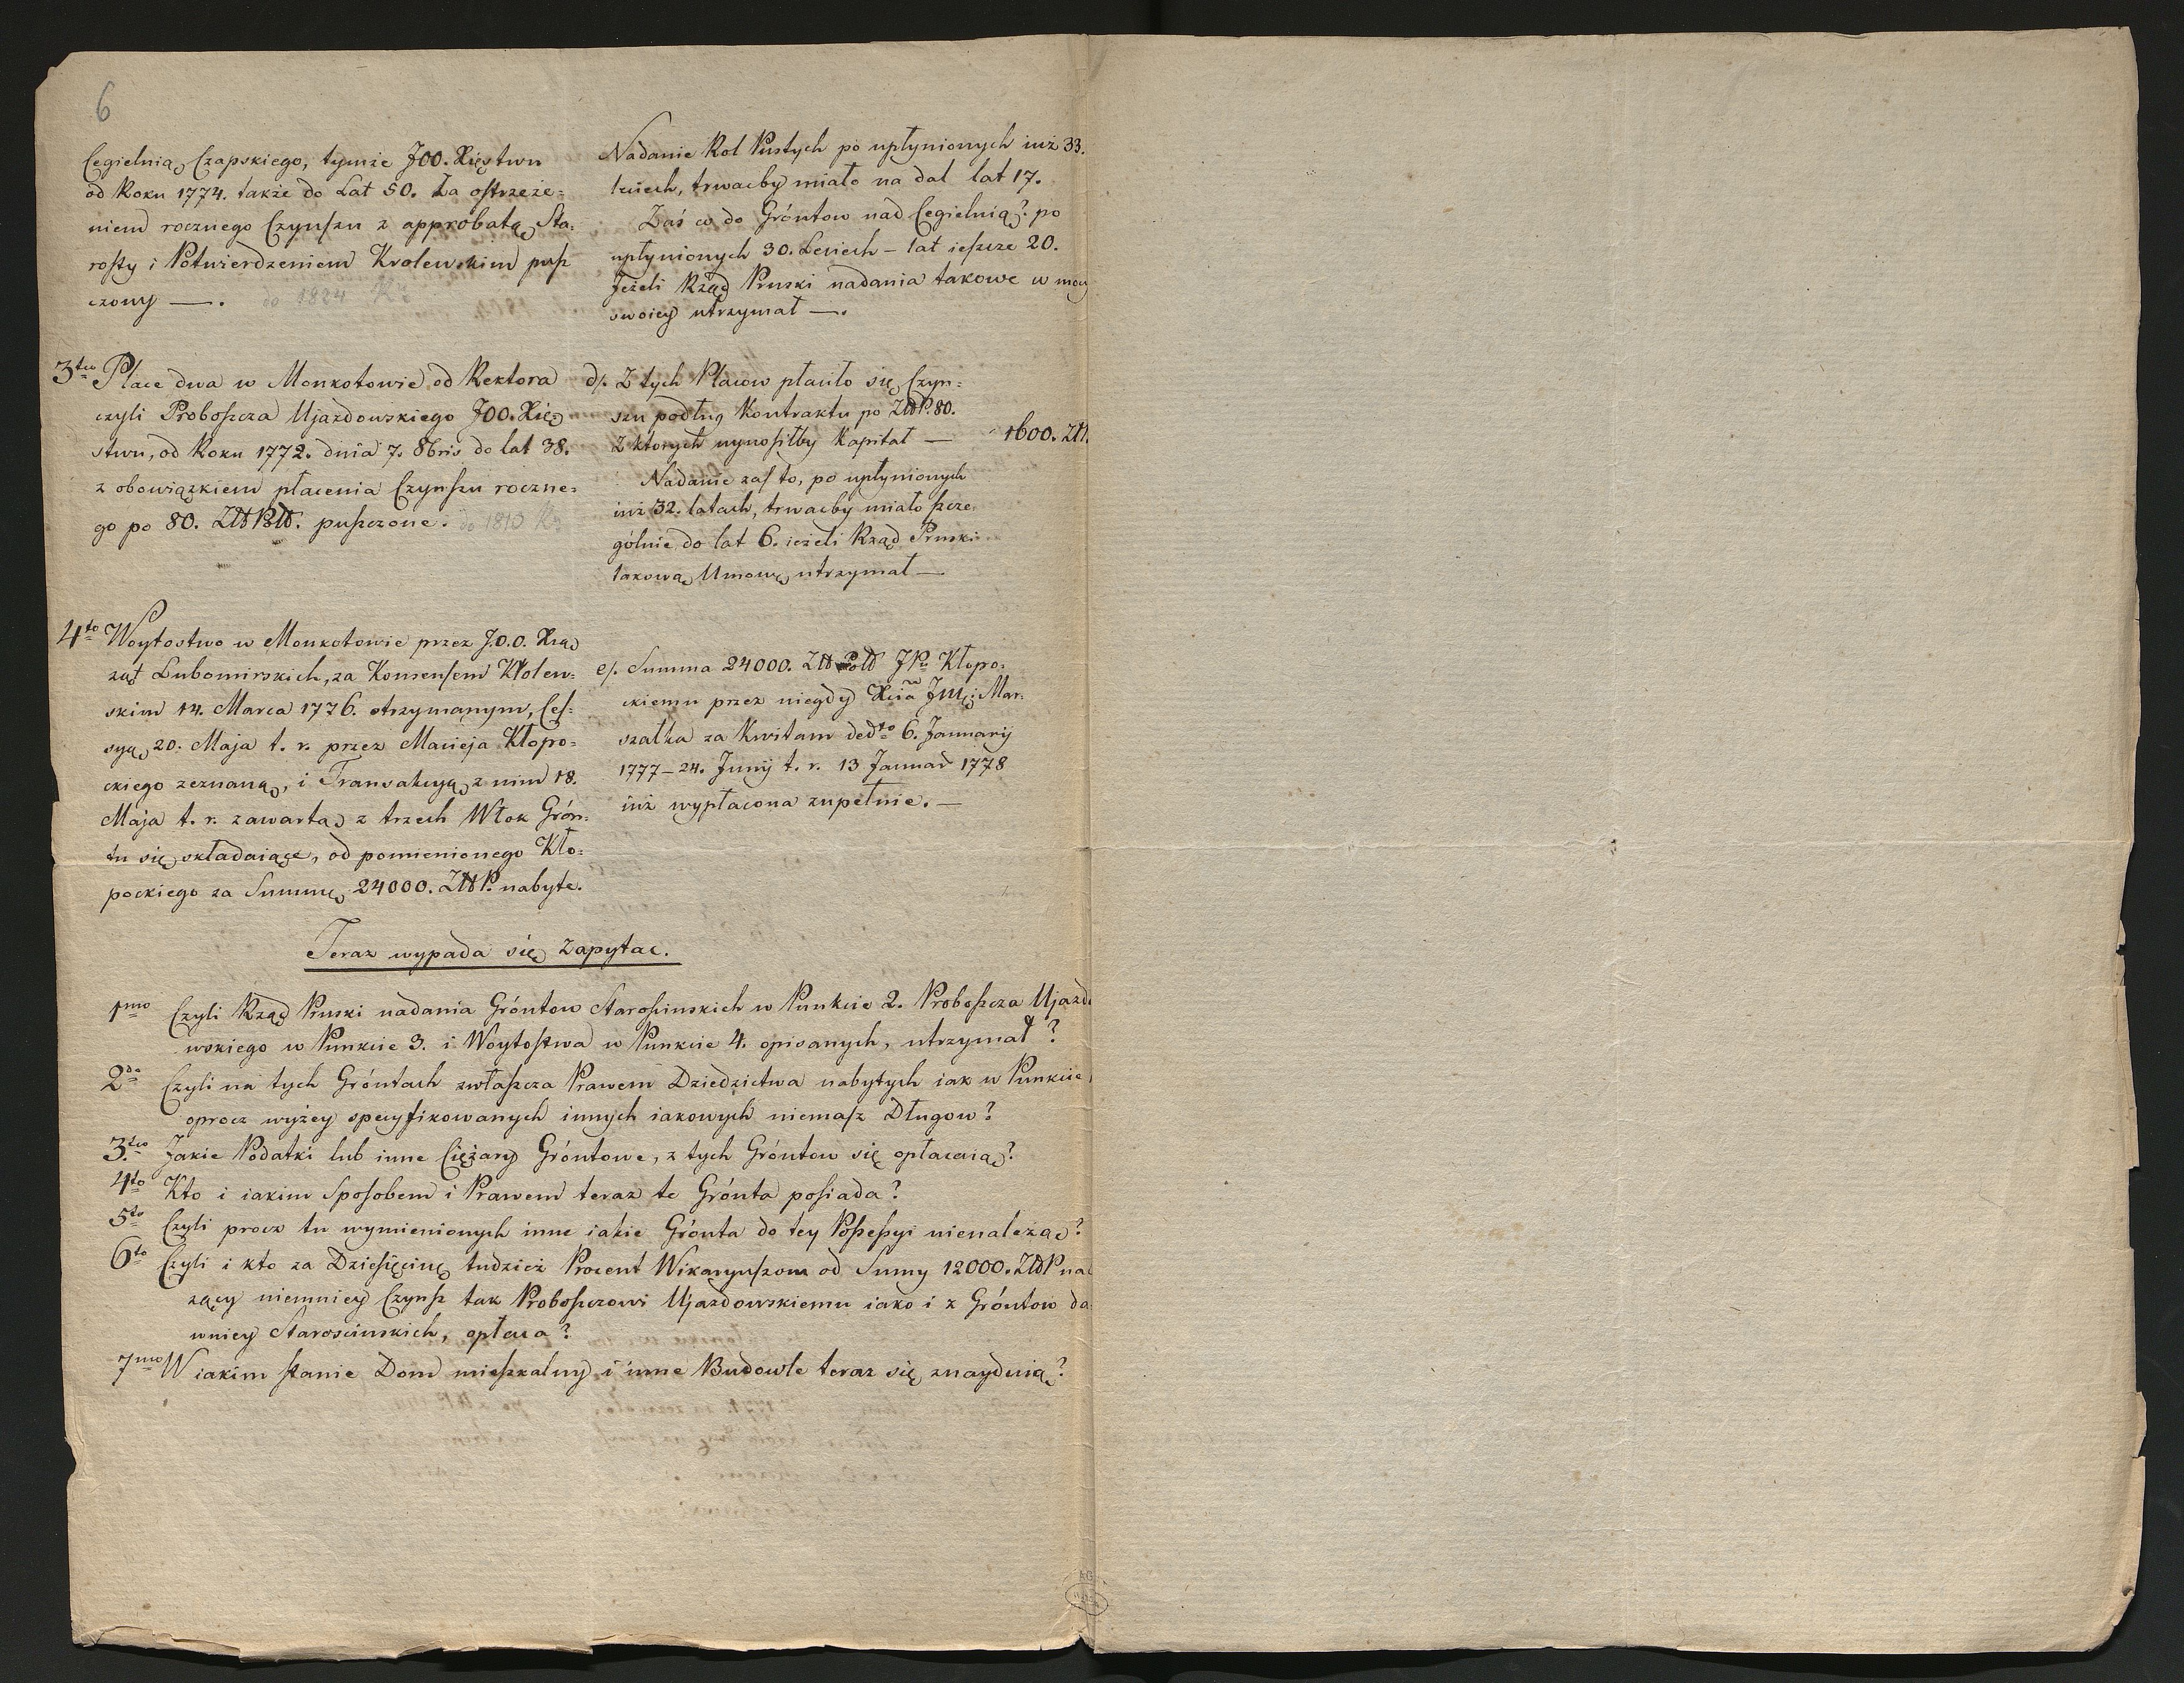 6
Cegielnią Czapskiego, tymże JOO. Xięstwu
od Roku 1774. także do Lat 50. za ostrzeże=
niem rocznego Czynszu z approbatą Sta=
rosty i Potwierdzeniem Krolewskim pusz
czony —. do 1824 Ru
3tio Place dwa w Monkotowie od Rektora
czyli Proboszcza Ujazdowskiego JOO. Xię=
stwu, od Roku 1772. dnia 7. 8bris do lat 38.
z obowiązkiem płacenia Czynszu roczne=
go po 80. Złt Polt. puszczone. do 1810 Ru
4to Woytostwo w Monkotowie przez J.O.O. Xią
żąt Lubomirskich, za Konsensem Krolew=
skim 14. Marca 1776. otrzymanym, Ces=
syą 20. Maja t. r. przez Macieja Kłopo=
ckiego zeznaną, i Transakcyą z nim 18.
Maja t. r. zawartą z trzech Włok Grón=
tu się składaiące, od pomienionego Kło=
pockiego za Summę 24000. Złt P. nabyte.
Nadanie Rol Pustych po upłynionych iuż 33.
leciech, trwacby miało na dal lat 17.
Zaś co do Gróntow nad Cegielnią? po
upłynionych 30. Leciech – lat ieszcze 20.
Jeżeli Rząd Pruski nadania takowe w mocy
swoiey utrzymał —.
d/. Z tych Placow płaciło się Czyn=
szu podług Kontraktu po Złt P. 80.
Z ktorych wynosiłby Kapitał — 1600. Złt.
Nadanie zaś to, po upłynionych
iuż 32. latach, trwacby miało szcze
gólnie do lat 6. ieżeli Rząd Pruski
takową Umowę utrzymał —
e/. Summa 24000. Złt Polt JPu Kłopo=
ckiemu przez niegdy Xcia Jmci Mar=
szałka za Kwitam dedto 6. Januarij
1777 – 24. Junij t. r. 13 Januar 1778
iuż wypłacona zupełnie. —
Teraz wypada się Zapytac.
1mo Czyli Rząd Pruski nadania Gróntow Starościnskich w Punkcie 2. Proboszcza Ujazdo
wskiego w Punkcie 3. i Woytostwa w Punkcie 4. opisanych, utrzymał?
2do Czyli na tych Gróntach zwłaszcza Prawem Dziedzictwa nabytych iak w Punkcie
oprocz wyżey specyfikowanych innych iakowych niemasz Długow?
3tio Jakie Podatki lub inne Ciężary Gróntowe, z tych Gróntow się opłacaią?
4to Kto i iakim Sposobem i Prawem teraz te Grónta posiada?
5to Czyli procz tu wymienionych inne iakie Grónta do tey Possessyi nienależą?
6to Czyli i kto za Dziesięcinę tudzież Procent Wikaryuszom od Sumy 12000. Złt P nal
żący niemniey Czynsz tak Proboszczowi Ujazdowskiemu iako i z Gróntow da=
wniey Starościnskich, opłaca?
7mo W iakim stanie Dom mieszkalny i inne Budowle teraz się znayduią?